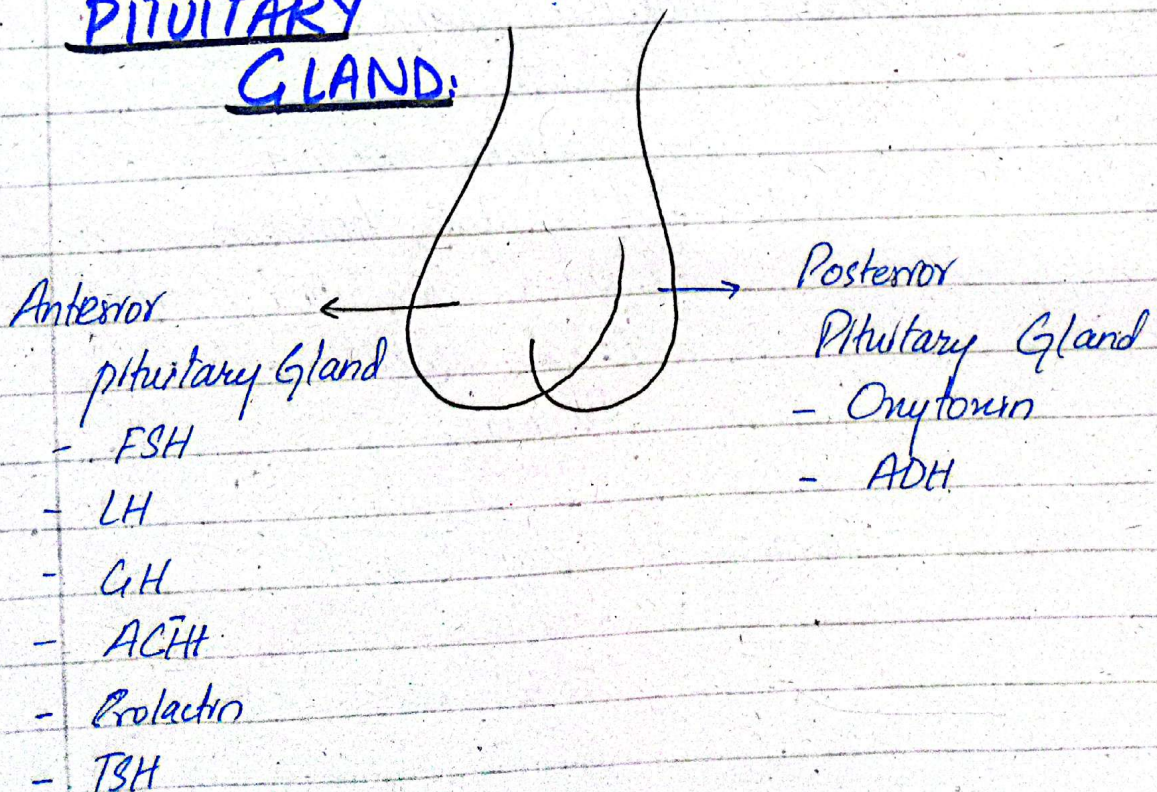 PITUITARY
GLAND:
Anterior
pituitary Gland
- FSH
- LH
- GH
- ACTH
- Prolactin
- TSH
Posterior
Pituitary Gland
- Oxytoxin
- ADH